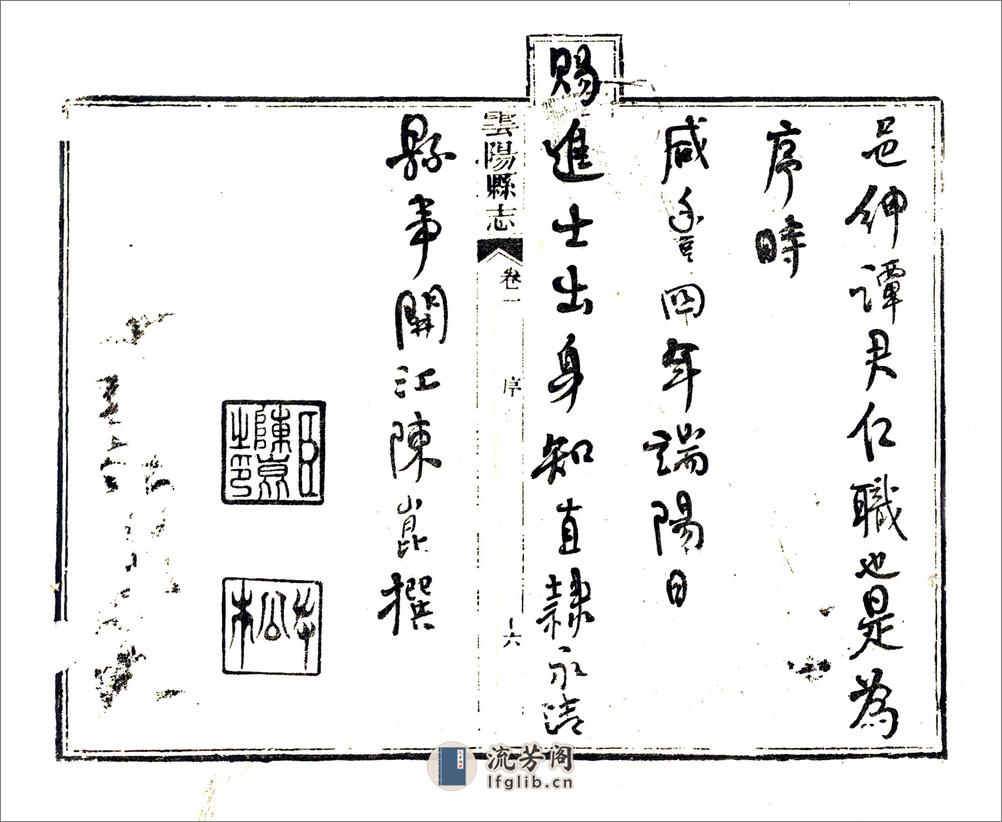 邑紳譚君仁職也是為
序時
咸豐四年端陽日
賜進士出身知直隸永清
雲陽縣志
卷一
序
六
縣事開江陳崑撰
臣陳崑之印
松
流芳阁
lfglib.cn